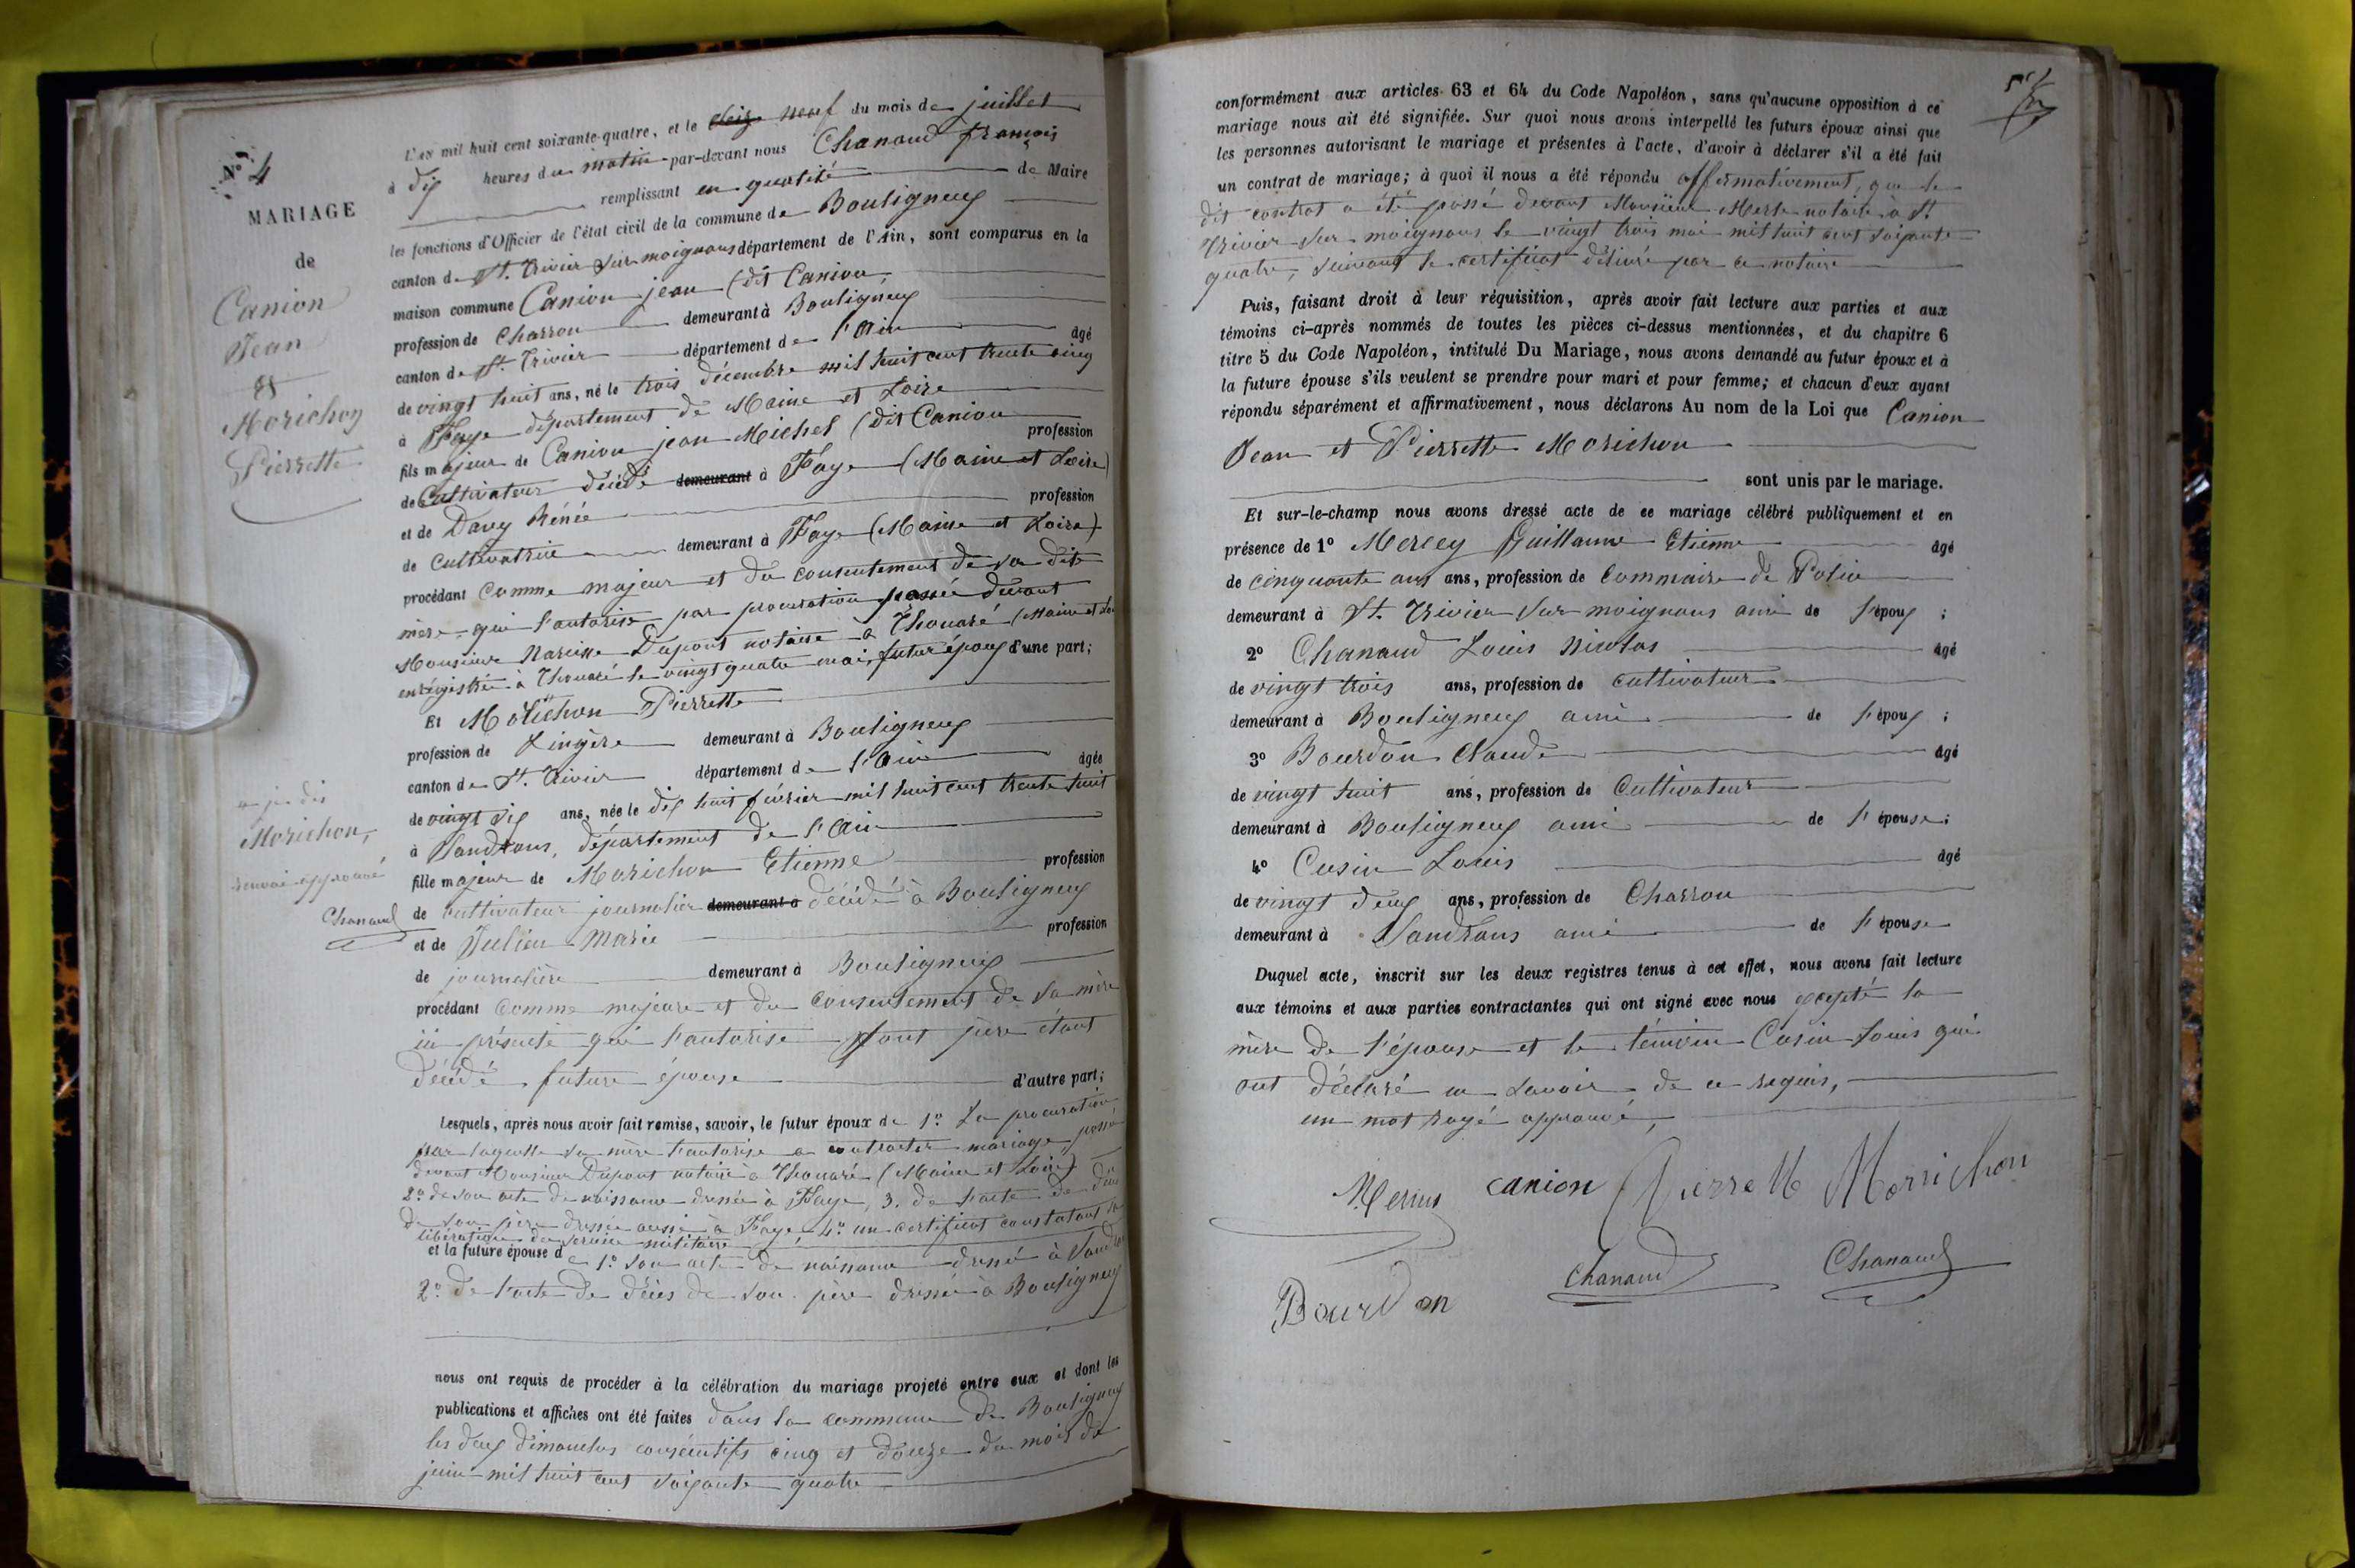 N° 4
MARIAGE
de
Canion
Jean
&
Morichon
Pierrette
je dis
Morichon,
renvoi approuvé
Chanaud
L'an mil huit cent soixante-quatre, et le neuf du mois de juillet
à dix heures du matin par-devant nous Chanaud françois
remplissant en qualité de Maire
les fonctions d'Officier de l'état civil de la commune de Bouligneux
canton de St. Trivier sur moignans département de l'Ain, sont comparus en la
maison commune Canion jean (dit Caniou
profession de Charron demeurant à Bouligneux
canton de St. Trivier département de l'Ain âgé
de vingt huit ans, né le trois décembre mil huit cent trente cinq
à Faye département de Maine et Loire
fils majeur de Caniou jean Michel (dit Caniou profession
de Cultivateur décédé demeurant à Faye (Maine et Loire)
et de Davy Rénée profession
de Cultivatrice demeurant à Faye (Maine et Loire)
procédant comme majeur et du consentement de sa dite
mère qui l'autorise par procuration passée devant
Monsieur Narcisse Dupont notaire à Thouaré (Maine et Loi
enrégistrée à Thouaré le vingt quatre mai, futur époux d'une part;
Et Morichon Pierrette
profession de Lingère demeurant à Bouligneux
canton de St. Trivier département de l'Ain âgée
de vingt six ans, née le dix huit février mil huit cent trente huit
à Sandrans, département de l'Ain
fille majeure de Morichon Etienne profession
de cultivateur journalier demeurant à décédé à Bouligneux
et de Julien Marie profession
de journalière demeurant à Bouligneux
procédant comme majeure et du consentement de sa mère
ici présente qui l'autorise sont père étant
décédé future épouse d'autre part;
Lesquels, après nous avoir fait remise, savoir, le futur époux de 1° La procuration
par laquelle sa mère l'autorise a contracter mariage passé
devant Monsieur Dupont notaire à Thouaré (Maine et Loire)
2° de son acte de naissance dressé à Faye, 3. de l'acte de décé
de son père dressé aussi à Faye 4° un certificat constatant sa
libération du service militaire
et la future épouse de 1° son acte de naissance dressé à Sandra
2° de l'acte de décès de son père dressé à Bouligneux
nous ont requis de procéder à la célébration du mariage projeté entre eux et dont les
publications et affiches ont été faites dans la commune de Bouligneux
les deux dimanches consécutifs cinq et douze du mois de
juin mil huit cent soixante quatre
conformément aux articles 63 et 64 du Code Napoléon, sans qu'aucune opposition à ce
mariage nous ait été signifiée. Sur quoi nous avons interpellé les futurs époux ainsi que
les personnes autorisant le mariage et présentes à l'acte, d'avoir à déclarer s'il a été fait
un contrat de mariage; à quoi il nous a été répondu affirmativement, que le
dit contrat a été passé devant Monsieur Merle notaire à St.
Trivier sur moignans le vingt trois mai mil huit cent soixante
quatre, suivant le certificat délivré par ce notaire
Puis, faisant droit à leur réquisition, après avoir fait lecture aux parties et aux
témoins ci-après nommés de toutes les pièces ci-dessus mentionnées, et du chapitre 6
titre 5 du Code Napoléon, intitulé Du Mariage, nous avons demandé au futur époux et à
la future épouse s'ils veulent se prendre pour mari et pour femme; et chacun d'eux ayant
répondu séparément et affirmativement, nous déclarons Au nom de la Loi que Canion
Jean et Pierrette Morichon
sont unis par le mariage.
Et sur-le-champ nous avons dressé acte de ce mariage célébré publiquement et en
présence de 1° Guillaume Etienne âgé
de cinquante ans ans, profession de Commaire de Police
demeurant à St. Trivier sur moignans ami de l'époux ;
2° Chanaud Louis Nicolas âgé
de vingt trois ans, profession de cultivateur
demeurant à Bouligneux ami de l'époux ;
3° Bourdon Claude âgé
de vingt huit ans, profession de Cultivateur
demeurant à Bouligneux ami de l'épouse;
4° Cusin Louis âgé
de vingt deux ans, profession de Charron
demeurant à Sandrans ami de l'épouse
Duquel acte, inscrit sur les deux registres tenus à cet effet, nous avons fait lecture
aux témoins et aux parties contractantes qui ont signé avec nous excepté la
mère de l'épouse et le témoin Cusin Louis qui
ont déclaré ne savoir de ce requis,
un mot rayé approuvé,
canion Pierrette Morrichon
Bourdon Chanaud Chanaud